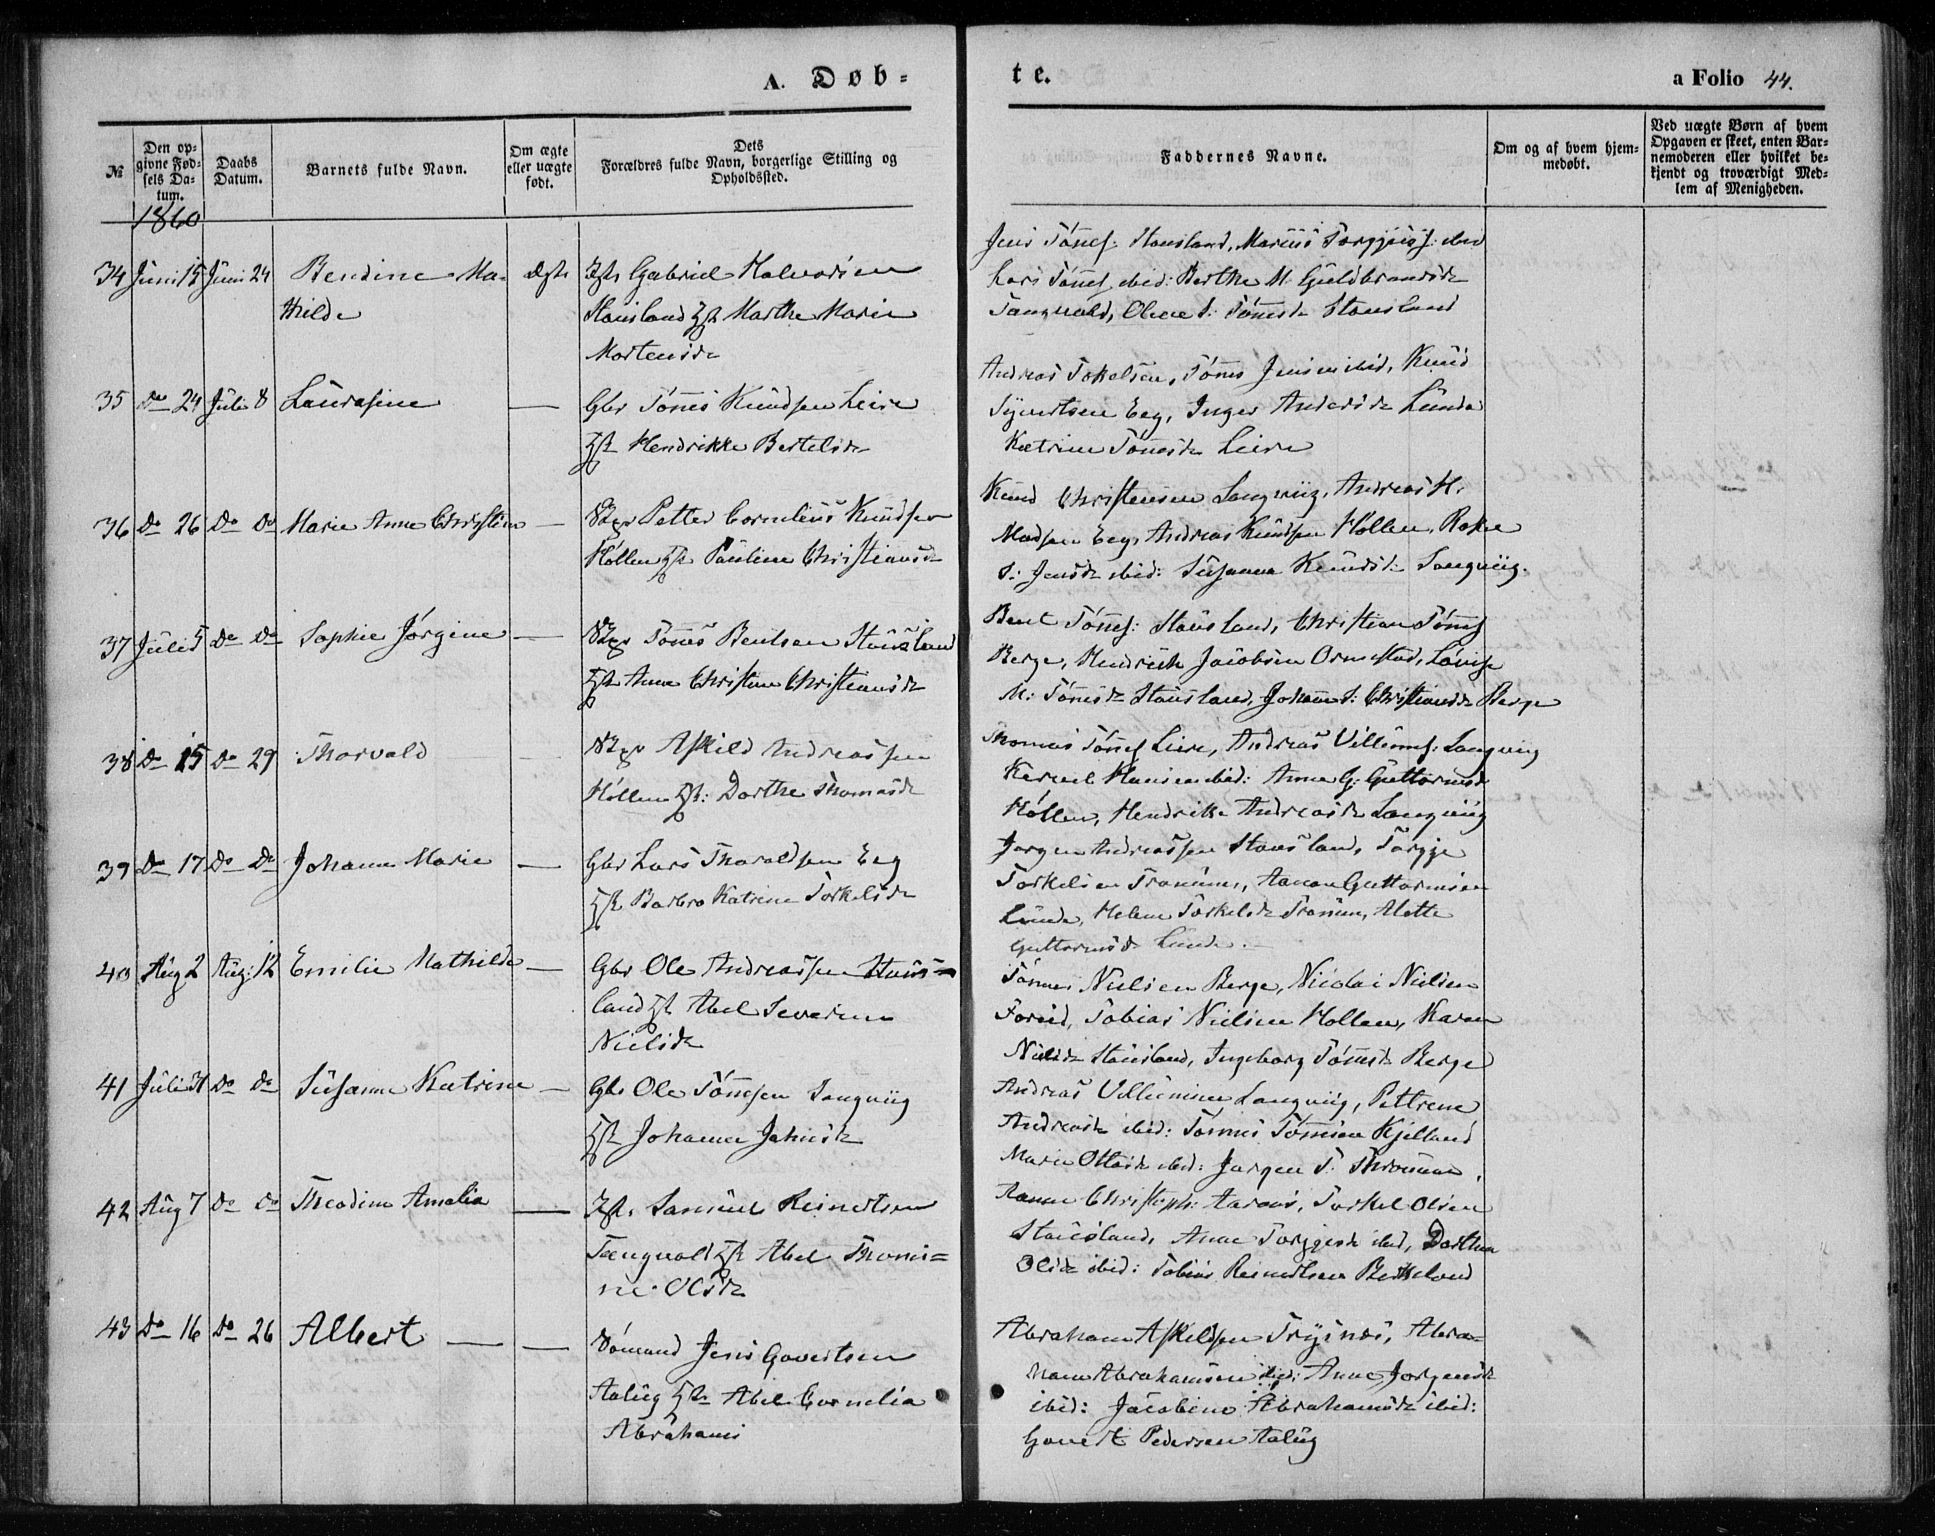 A. Døb-
te.
a Folio 44.
№
Den op-
givne Fød-
sels Da-
tum.
Daabs
Datum.
Barnets fulde Navn.
Om ægte
eller uægte
født.
Dets
Forældres fulde Navn, borgerlige Stilling og
Opholdssted.
Faddernes Navne.
Om og af hvem hjem-
medøbt.
Ved uægte Børn af hvem
Opgaven er skeet, enten Bar-
nemoderen eller hvilket be-
kjendt og troværdigt Med-
lem af Menigheden.
1860
34 Juni 15 Juni 24 Bendine Ma-
thilde
Ægte
Gabriel Halvorsen
Stausland Marthe Marie
Mortensdr
Jens Tönnes: Stausland, Marcus Torgjusss: ibid
Lars Tönnes ibid: Berthe M. Guldbrandsdr
Tangvald, Olene S: Tönnesdr Stausland
35 do 24 Juli 8 Laurasine —
Gbr Tönnes Knudsen Leire
Hendrikke Bertelsdr
Andreas Tokelsen, Tönnes Jensen ibid, Knud
Syvertsen Eeg, Inger Andersdr Lunde
Katrine Tönnesdr Leire
36 Do 26 Do Do Marie Anne Christine —
Petter Cornelius Knudsen
Höllen Pauline Christiansdr
Knud Christensen Langviig, Andreas H.
Madsen Eeg, Andreas Knudsen Höllen,
S: Jensdr ibid: Susanne Knudsd: Langviig.
37 Juli 5 Do Do Sophie Jörgine —
Tönnes Bentsen Stausland
Anne Christine Christiansdr
Bent Tönnes: Stausland, Christian Tönnes
Berge, Hendrick Jacobsen Ormestad, Lovise
M: Tönnesdr Stausland, Johanne S: Christiansdr Berge
38 Do 15 Do 29 Thorvald —
Askild Andreassen
Höllen Dorthe Thomasdr
Thomas Tönnes Leire, Andreas Villums: Langviig
Hansen ibid: Anne G: Guttormsdr
Höllen, Hendrikke Andreasdr Langviig
39 Do 17 Do Do Johanne Marie —
Gbr Lars Tharaldsen Eeg
Barbro Katrine Torkelsdr
Jörgen Andreassen Stausland, Torgje
Torkelsen Tronum, Aanon Guttormsen
Lunde, Helene Torkelsdr Tronum, Mette
Guttormsdr Lunde.
40 Aug 2 Aug: 12 Emilie Mathilde —
Gbr Ole Andreassen Staus-
land Abel Severine
Nielsdr
Tönnes Nielsen Berge, Nicolai Nielsen
Tobias Nielsen Hollen, Karen
Nielsdr Stausland, Ingeborg Tönnesdr Berge
41 Juli 31 Do Do Susanne Katrine —
Gbr Ole Tönnesen Langviig
Johanne Jahnsdr
Andreas Villumsen Langviig, Pettrene
Andreasdr ibid: Tönnes Tönnesen Kjelland
Marie Ottosdr ibid: Jørgen T: Thronum
42 Aug 7 Do Do Theodine Amalia —
Samuel Reinertsen
Tangvald Abel Thomi-
ne Olsdr
Christoph: Aaröes, Torkel Olsen
Stausland, Anne Torgjesdr ibid, Dorthea
Olsdr ibid: Tobias Reinertsen
43 Do 16 Do 26 Albert —
Sömand Jens Govertsen
Aalüg Abel Cornelia
Abrahams
Abraham Askildsen Trysnæs, Abra-
ham Abrahamsen ibid: Anne Jørgensdr
ibid: Jacobine Abrahamsdr ibid:
Govert Pedersen Aalüg